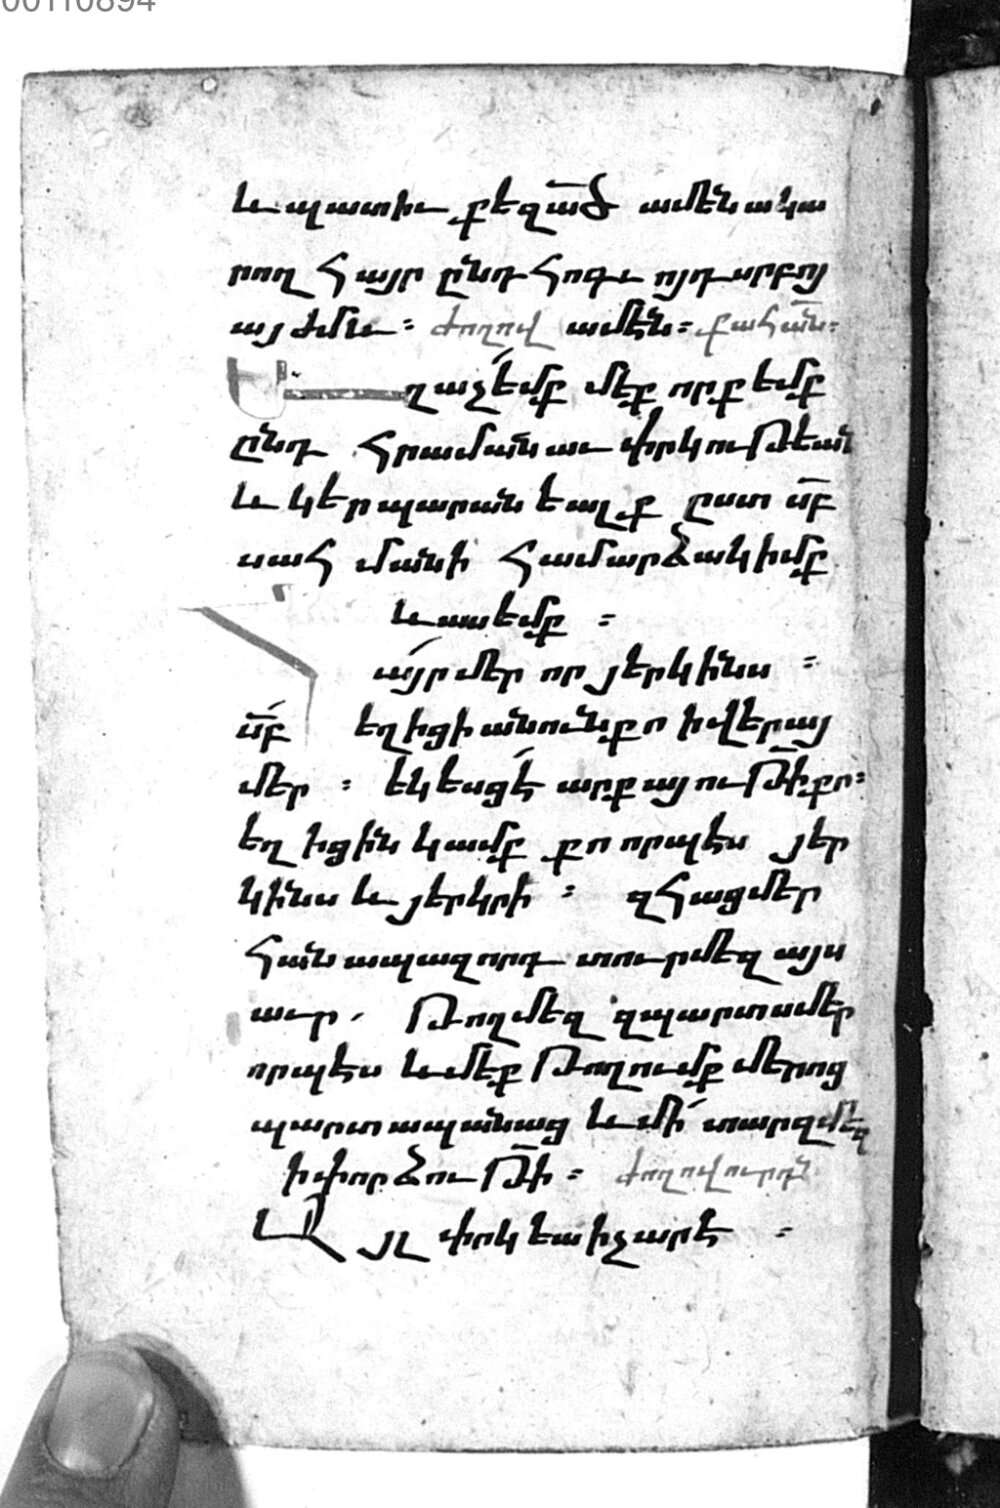 00110894
և պատիւ քեզ ած ամենակա
րող հայր ընդ հոգւոյդ սրբոյ
այժմև ։ ժողով ամէն ։ քահան ։
ղաչեմք մեք որք եմք
ընդ հրամանաւ փրկութեան
և կերպարանեալք ըստ սբ
սահմանի համարձակիմք
և ասեմք ։
այր մեր որ յերկինս ։
սբ եղիցի անունքո ի վերայ
մեր ։ եկեսցէ արքայութիքո ։
եղիցին կամք քո որպէս յեր
կինս և յերկրի ։ զհացմեր
հանապազորդ տուր մեզ այս
աւր, թող մեզ զպարտս մեր
որպէս և մեք թողումք մերոց
պարտապանաց և մի տարզմեզ
ի փորձութի ։ ժողովուրդն
Այլ փրկեա ի չարէ ։